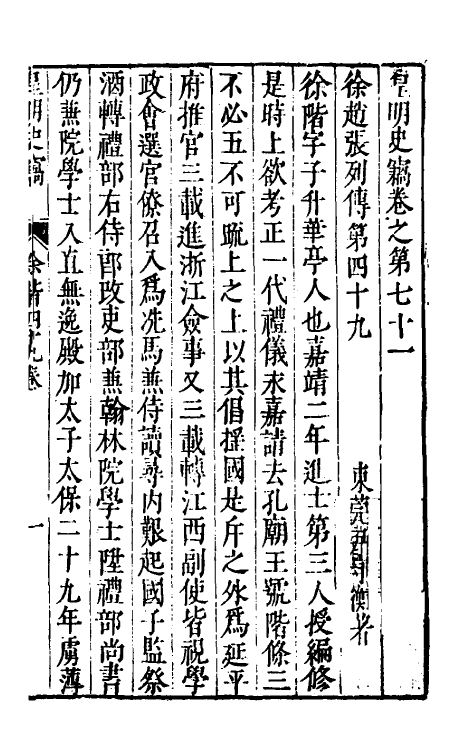 皇明史竊卷之第七十一
徐趙張列傳第四十九
東莞尹守衡著
徐階字子升華亭人也嘉靖二年進士第三人授編修
是時上欲考正一代禮儀永嘉請去孔廟王號階條三
不必五不可疏上之上以其倡搖國是斥之外為延平
府推官三載進浙江僉事又三載轉江西副使皆視學
政會選官僚召入爲洗馬兼侍讀尋內艱起國子監祭
酒轉禮部右侍郎改吏部兼翰林院學士陞禮部尚書
仍兼院學士入直無逸殿加太子太保二十九年虜薄
皇明史竊
徐階四十九卷
一